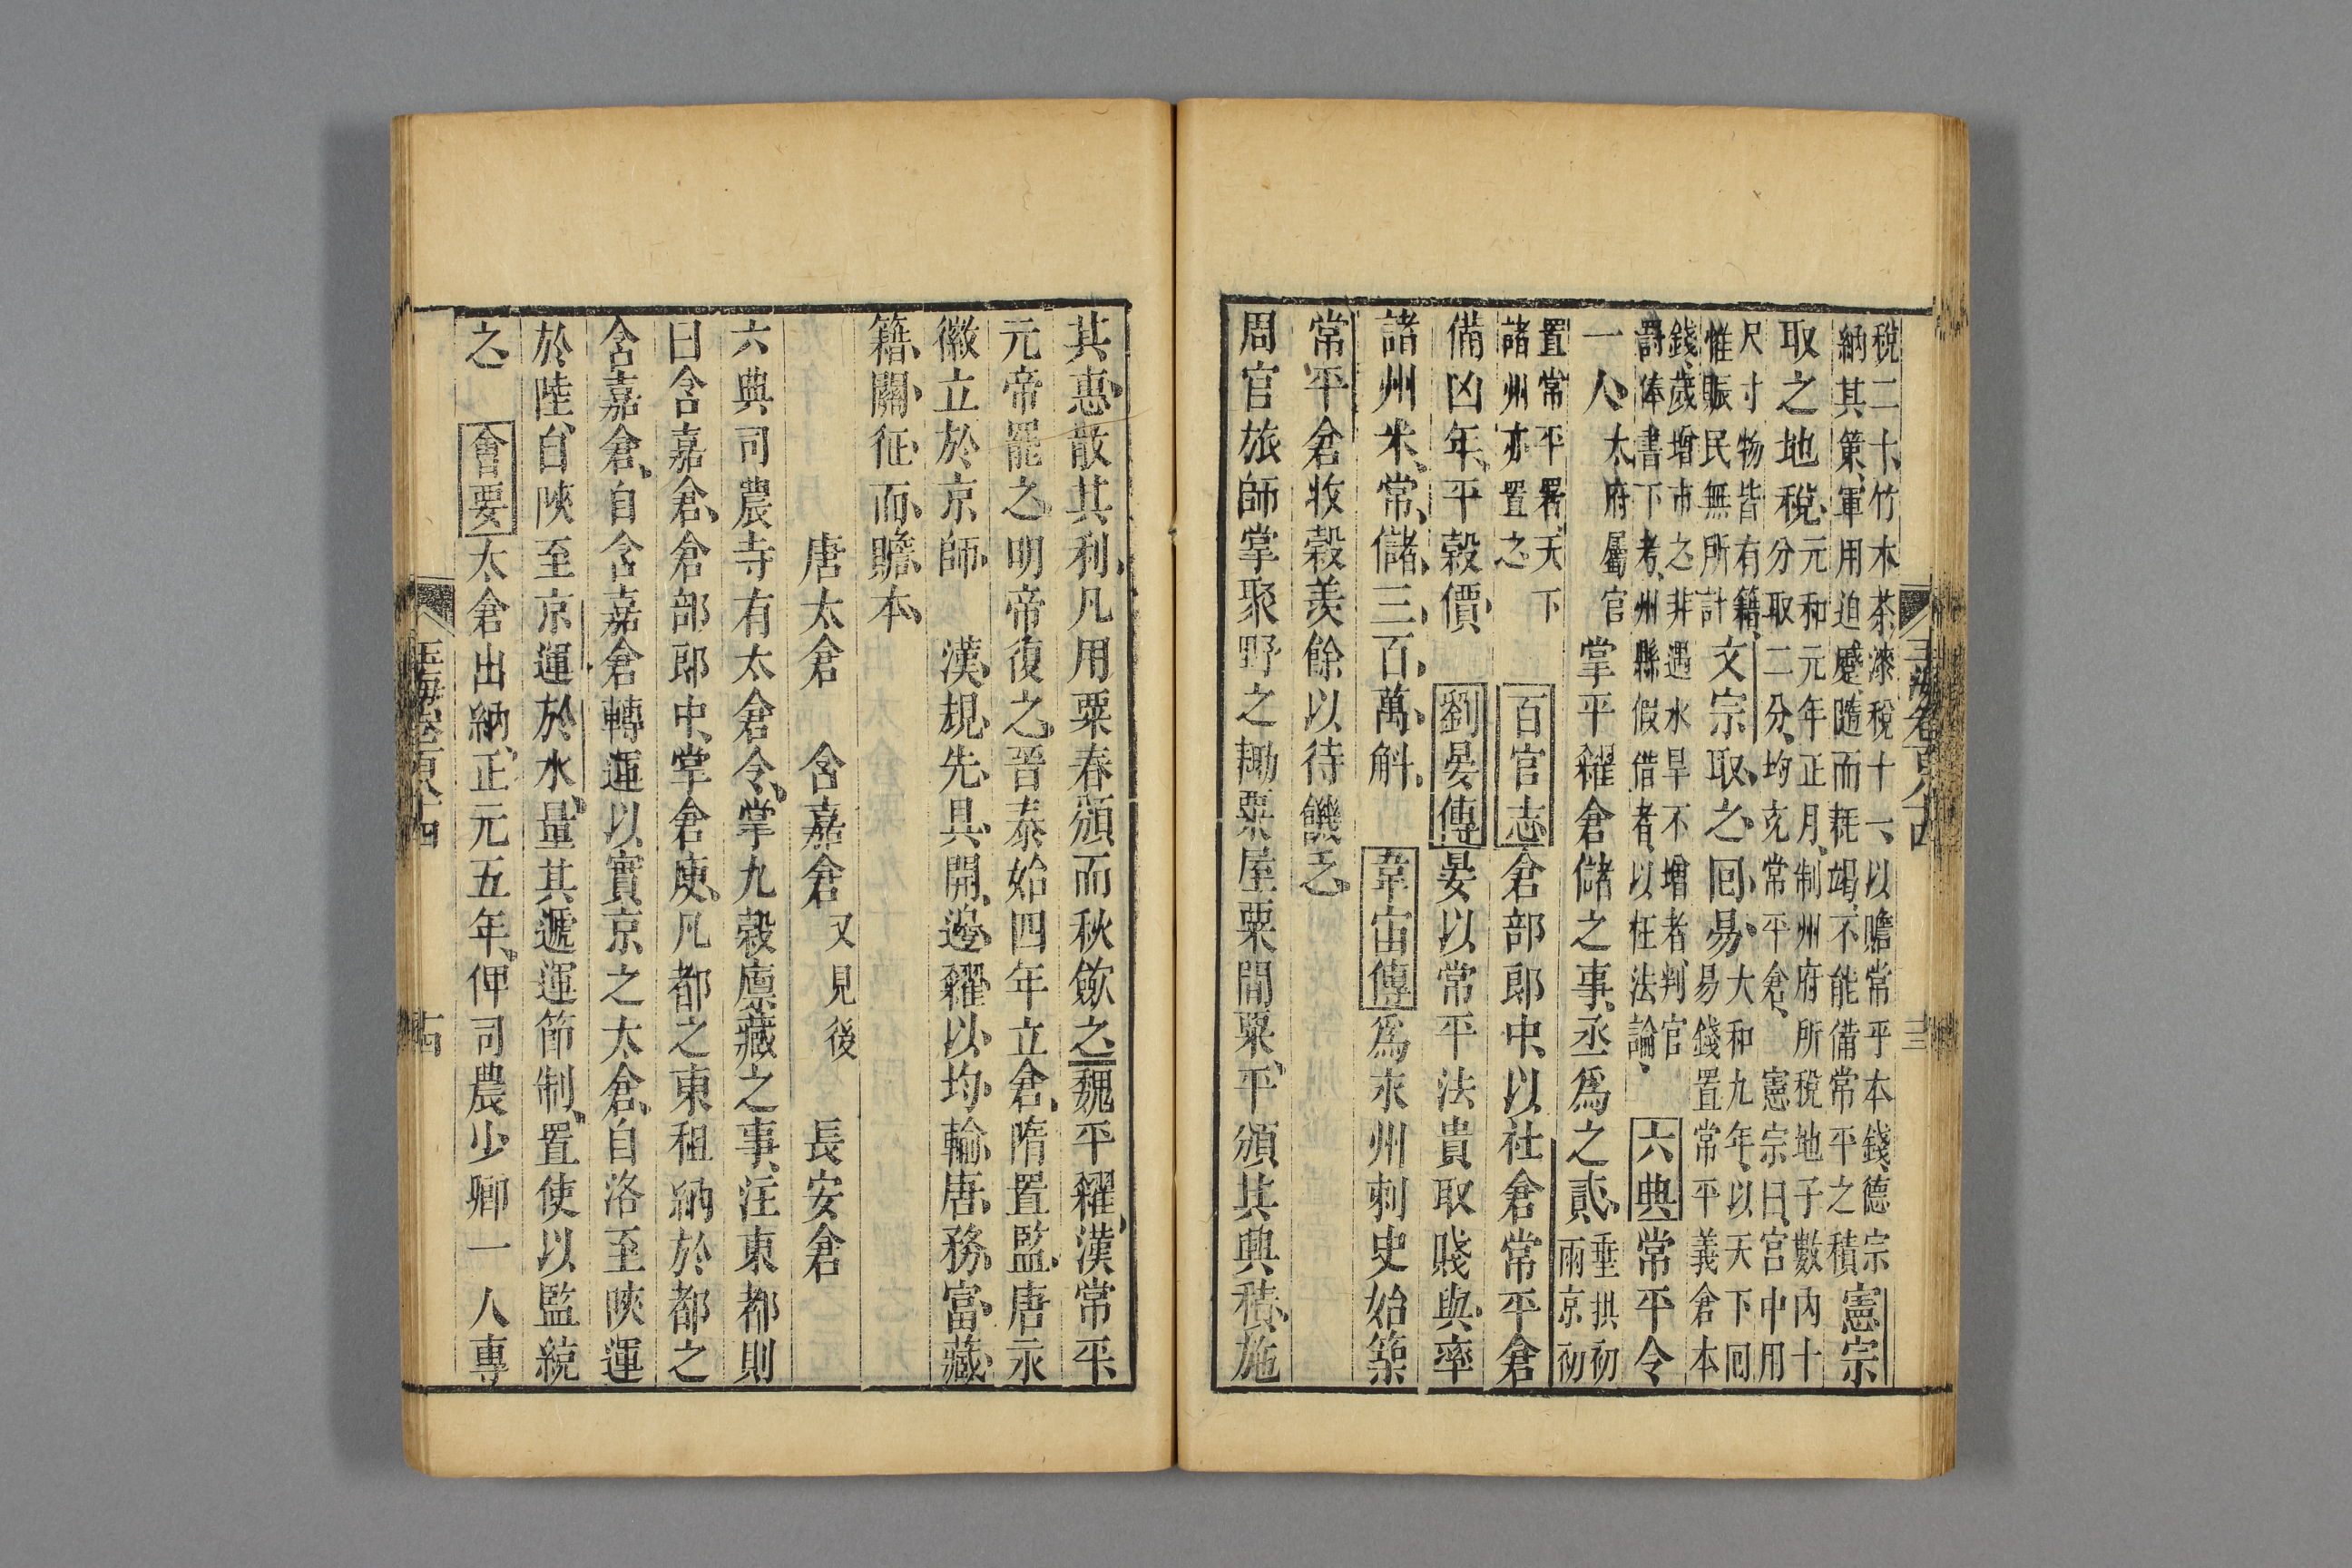 稅二十竹木茶漆稅十一以贍常平本錢德宗
納其策軍用迫蹙隨而耗竭不能備常平之積
憲宗
取之地稅
元和元年正月制州府所稅地子數內十
分取二分均充常平倉憲宗曰官中用
尺寸物皆有籍
惟賑民無所計
文宗取之回易
大和九年以天下回
易錢置常平義倉本
錢歲增市之非遇水旱不增者判官
罰俸書下考州縣假借者以枉法論
六典常平令
一人太府屬官掌平糴倉儲之事丞爲之貳
垂拱初
兩京初
置常平署天下
諸州亦置之
百官志倉部郎中以社倉常平倉
備凶年平穀價　劉晏傳晏以常平法貴取賤與率
諸州米常儲三百萬斛　韋宙傳爲永州刺史始築
常平倉收穀羡餘以待饑乏
周官旅師掌聚野之耡粟屋粟閒粟平頒其興積施
其惠散其利凡用粟春頒而秋斂之魏平糴漢常平
元帝罷之明帝復之晉泰始四年立倉隋置監唐永
徽立於京師　漢規先具開邊糴以均輸唐務富藏
籍關征而贍本
唐太倉　含嘉倉又見後　長安倉
六典司農寺有太倉令掌九穀廩藏之事注東都則
曰含嘉倉倉部郎中掌倉庾凡都之東租納於都之
含嘉倉自含嘉倉轉運以實京之太倉自洛至陝運
於陸自陝至京運於水量其遞運節制置使以監統
之　會要太倉出納正元五年俾司農少卿一人專
玉海卷百八十四　三
玉海卷百八十四　古